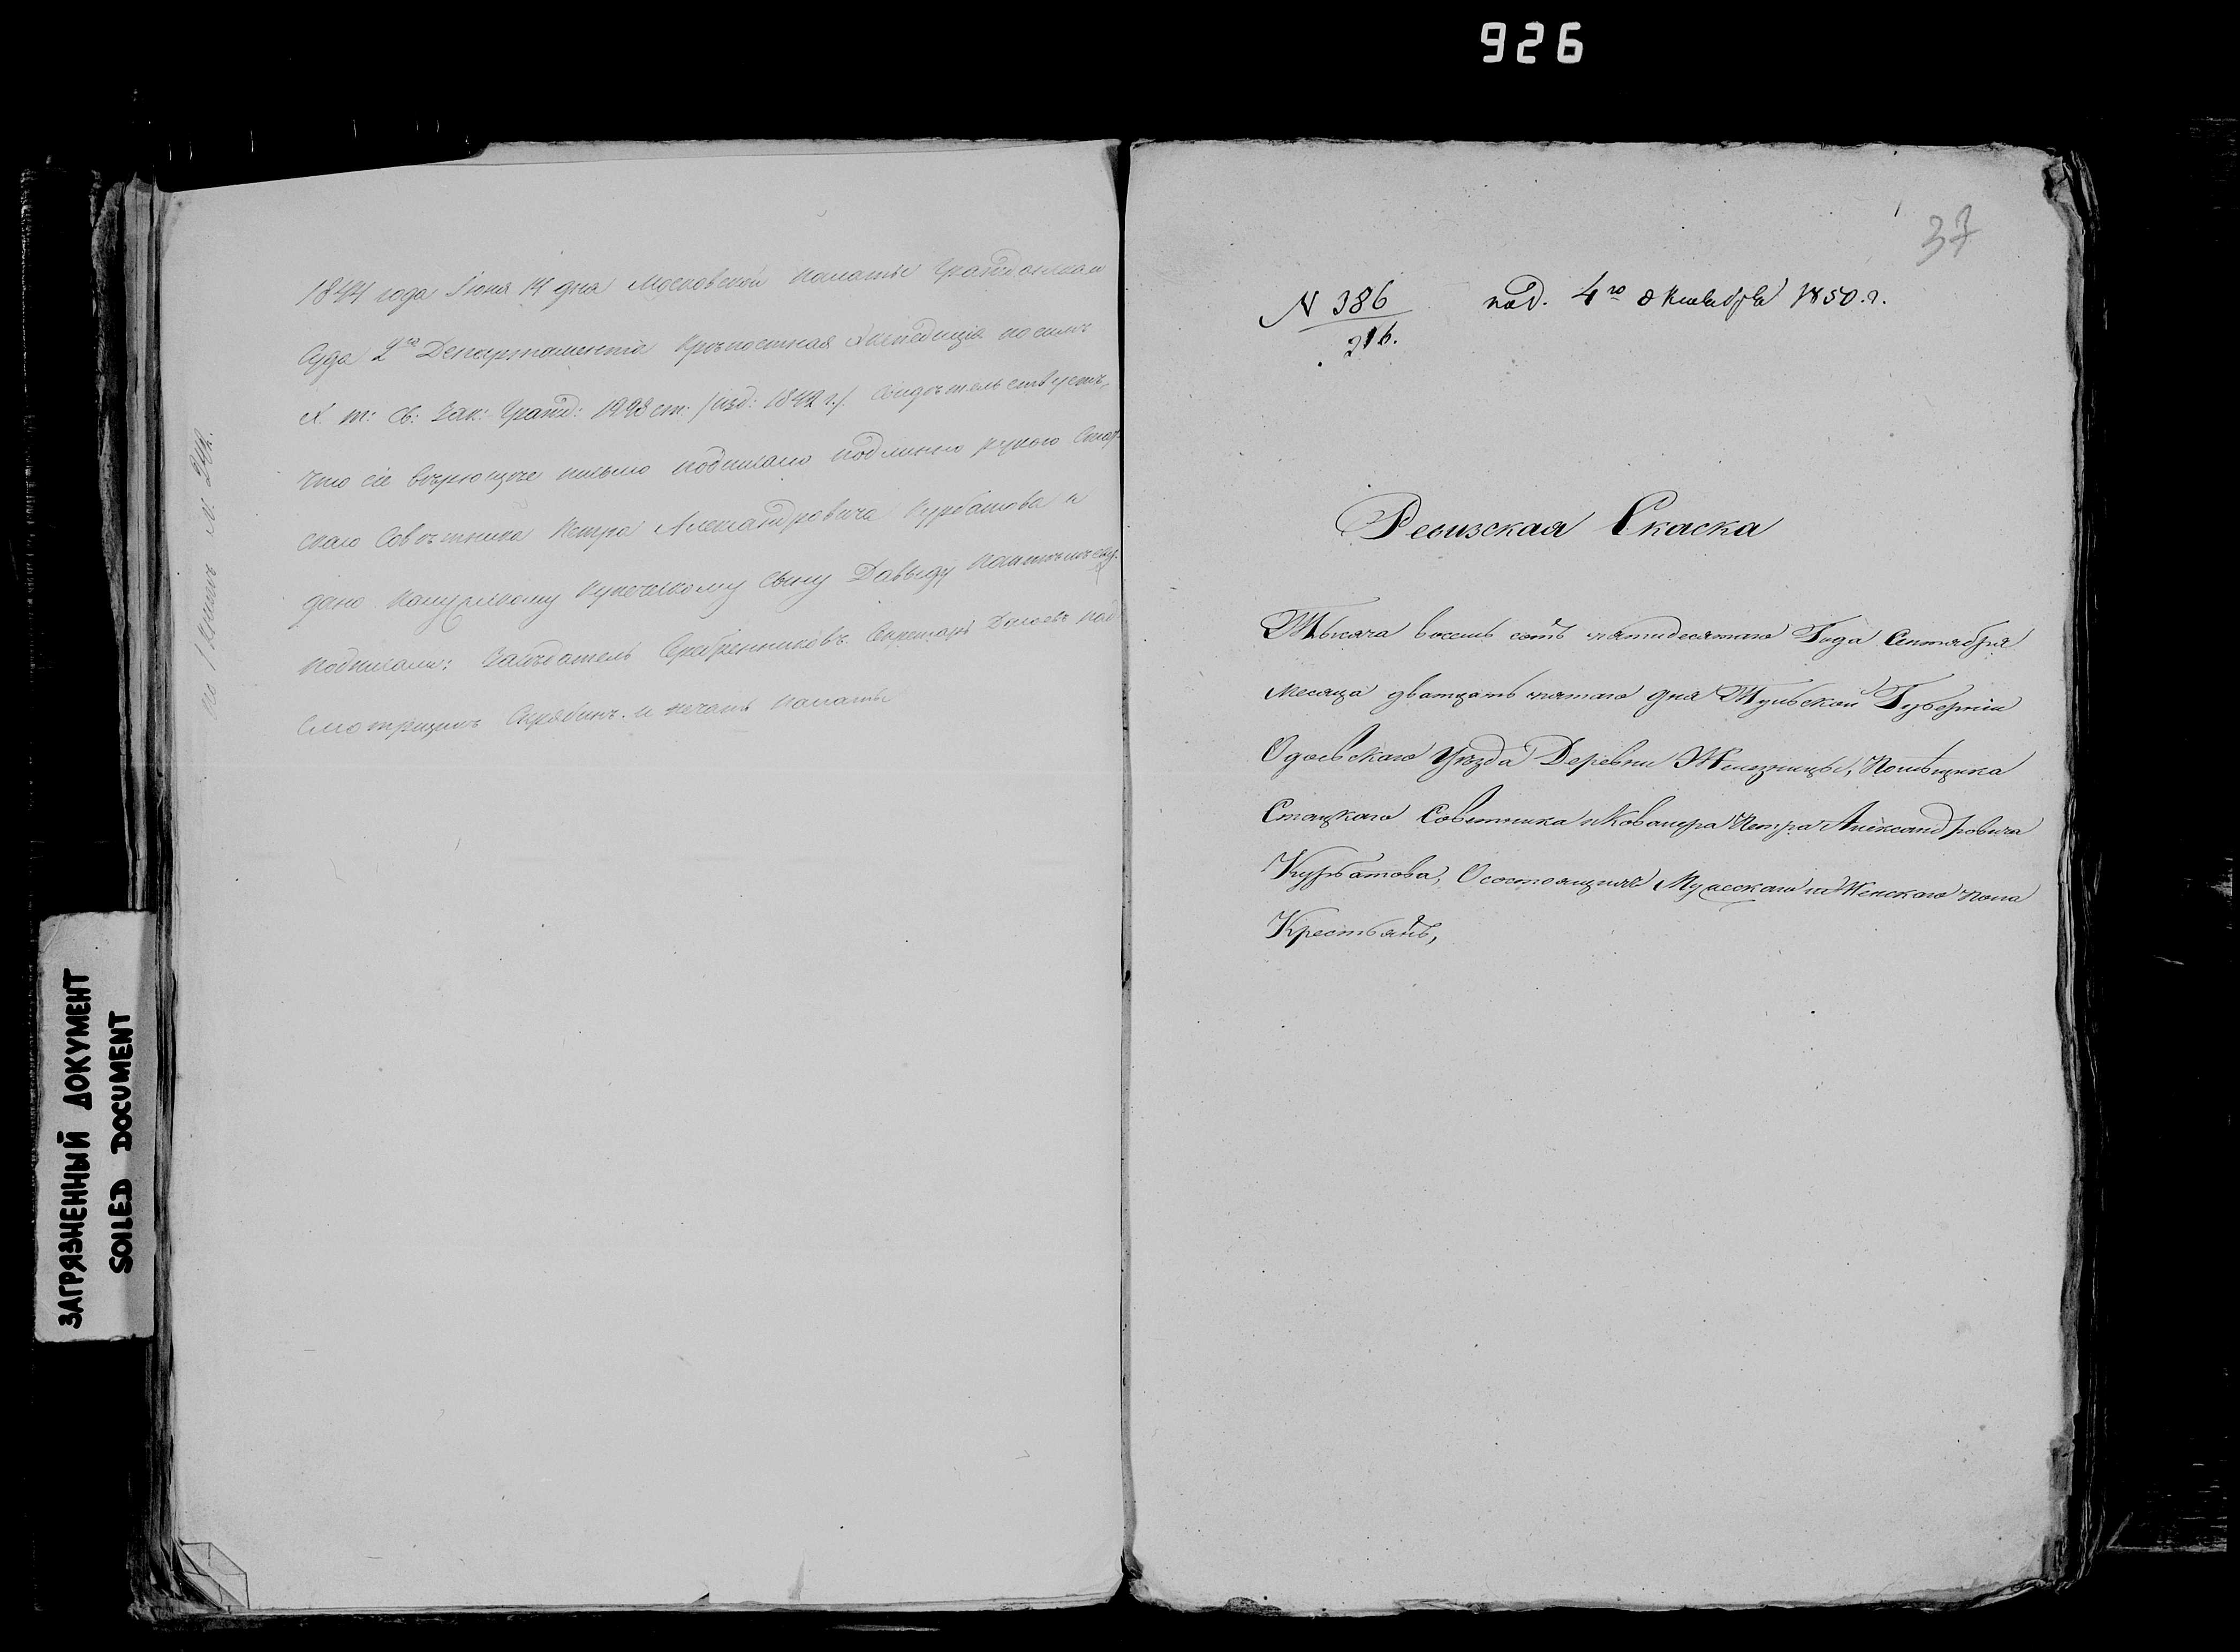 926
1844 года Іюня 14 дня Московской Палаты Гражданскаго
Суда 2го Департамента Крѣпостная Экспедиція по силѣ
X т: Св: Зак: Гражд: 1998 ст: /изд: 1842 г./ свидѣтельствуетъ,
что сіе вѣрющее письмо подписано подлинно рукою Стат-
скаго Совѣтника Петра Александровича Курбатова и
дано Купеческому сыну Давыду
подписали: Засѣдатель Серебренниковъ. Секретарь Над-
смотрщикъ Скрябинъ. и печать палаты
37
N 386
216.
под. 4го октября 1850. г.
Ревизская Скаска
Тысяча восемь сотъ пятидесятаго Года Сентября
месяца дватцать пятаго дня Тульской Губерніи
Одоевскаго Уѣзда Деревни Железницы, Помѣщика
Стацкаго Советника и Кавалера Петра Александровича
Курбатова, О состоящихъ Мужескаго и Женскаго пола
Крестьянъ,
ЗАГРЯЗНЕННЫЙ ДОКУМЕНТ
SOILED DOCUMENT